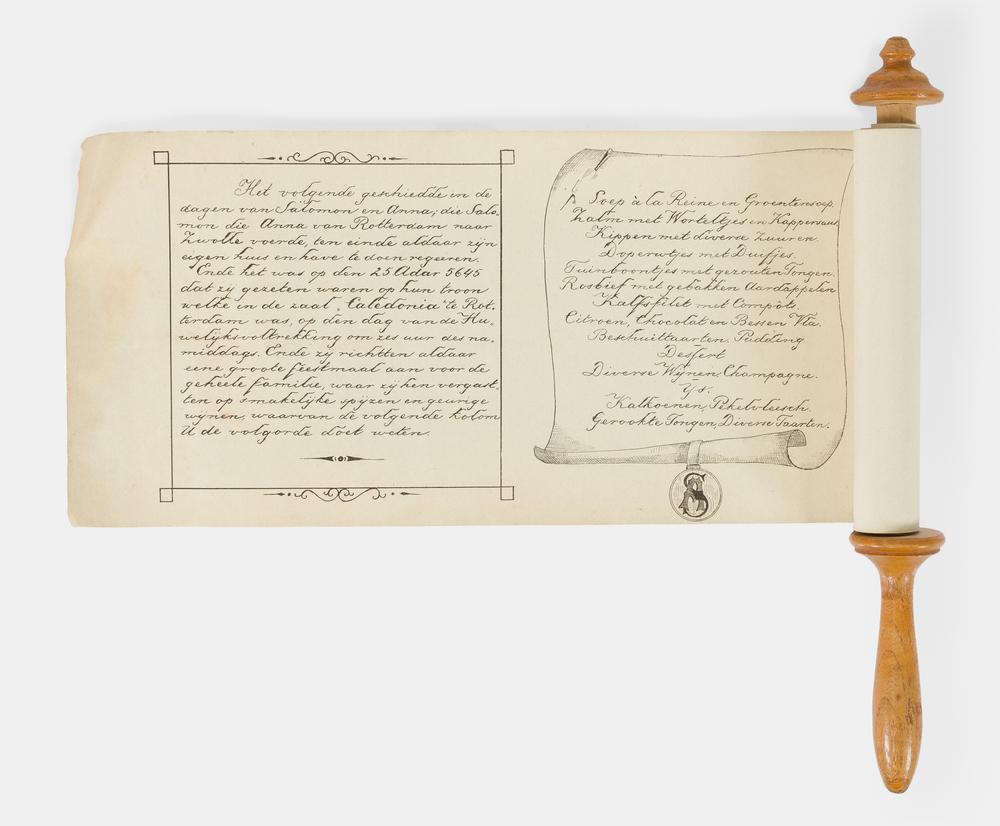 Het volgende geschiedde in de
dagen van Salomon en Anna; die Salo-
mon die Anna van Rotterdam naar
Zwolle voerde, ten einde aldaar zijn
eigen huis en have te doen regeeren.
Ende het was op den 25 Adar 5645
dat zij gezeten waren op hun troon
welke in de zaal „Caledonia" te Rot-
terdam was, op den dag van de Hu-
welijksvoltrekking om zes uur des na-
middags. Ende zij richtten aldaar
eene groote feestmaal aan voor de
geheele familie, waar zij hen vergast-
ten op smakelijke spijzen en geurige
wijnen, waarvan de volgende kolom
U de volgorde doet weten.
Soep à la Reine en Groentensoep.
Zalm met Worteltjes en Kappersaus
Kippen met diverse Zuuren.
Doperwtjes met Duifjes.
Tuinboontjes met gezouten Tongen.
Rosbief met gebakken Aardappelen
Kalfsfilet met Compôt.
Citroen, Chocolat en Bessen Vla.
Beschuittaarten, Pudding
Dessert
Diverse Wijnen, Champagne.
IJs.
Kalkoenen, Pekelvleesch.
Gerookte Tongen, Diverse Taarten.
AS